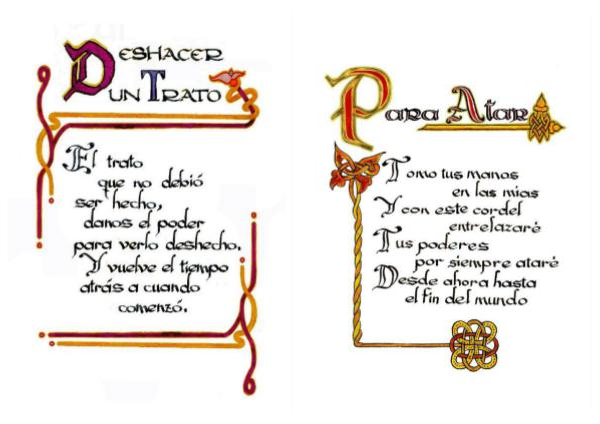 DESHACER
UN TRATO
El trato
que no debió
ser hecho,
danos el poder
para verlo deshecho.
Y vuelve el tiempo
atrás a cuando
comenzó.
Para Atar
Tomo tus manos
en las mias
Y con este cordel
entrelazaré
Tus poderes
por siempre ataré
Desde ahora hasta
el fin del mundo